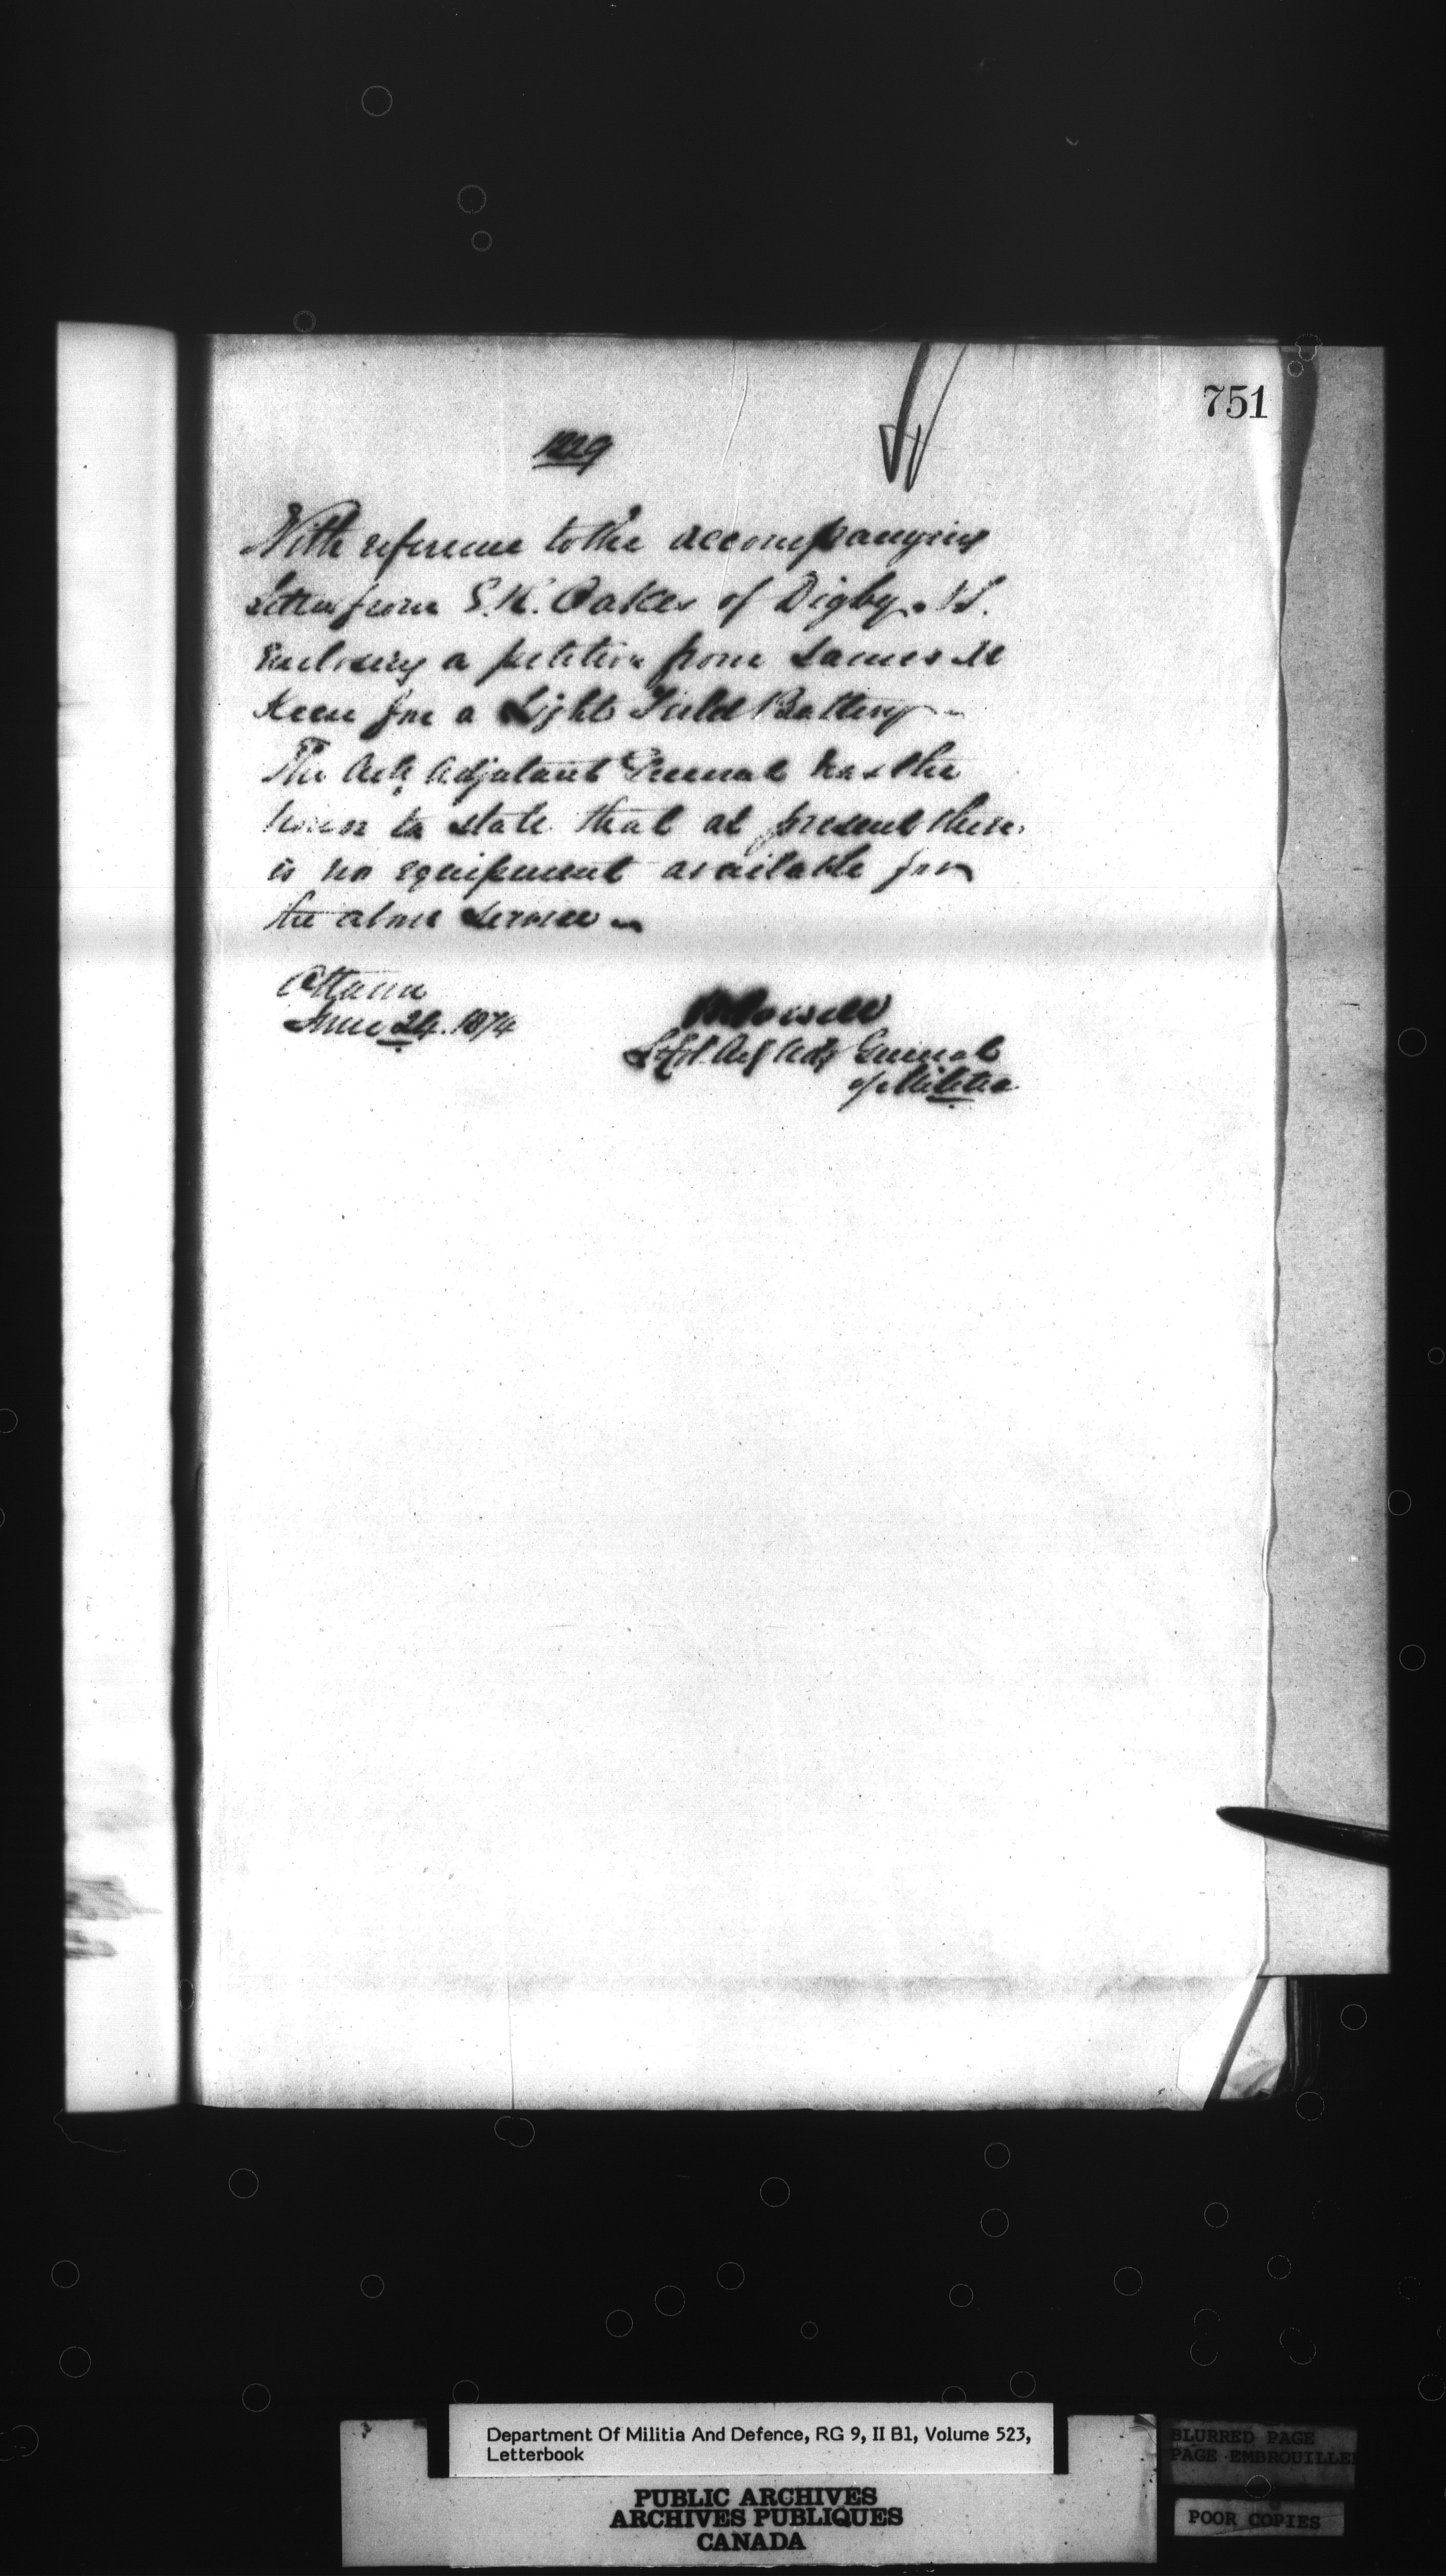 751
1029
With reference to the accompanying
letter from E.R. Oakes of Digby N.S.
Enclosing a petition from James
Keen for a Light Field Battery
The Actg Adjutant General has the
honor to state that at present there
is no equipment available for
the above service
Ottawa
June 24. 1874
Powell
Lt Col. Actg Adjt General
of Militia
Department Of Militia And Defence, RG 9, II B1, Volume 523,
Letterbook
PUBLIC ARCHIVES
ARCHIVES PUBLIQUES
CANADA
BLURRED PAGE
PAGE EMBROUILLEE
POOR COPIES